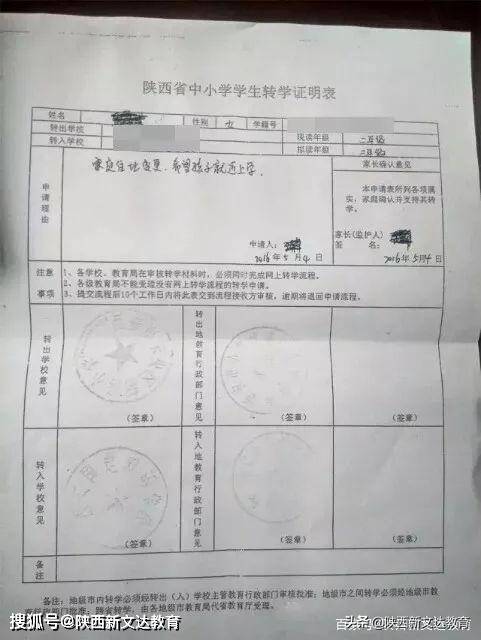 陕西省中小学学生转学证明表
姓名 性别 女 学籍号
转出学校 现读年级 二年级
转入学校 拟读年级 二年级
申请理由
家庭住址变更，希望孩子就近上学。
申请人：
2016年5月4日
家长确认意见
本申请表所列各项属实，家庭确认并支持其转学。
家长(监护人)
签名：
2016年5月4日
注意事项
1、各学校、教育局在审核转学材料时，必须同时完成网上转学流程。
2、各级教育局不能受理没有网上转学流程的转学申请。
3、提交流程后10个工作日内将此表交到流程接收方审核，逾期将退回申请流程。
转出学校意见
(签章)
转出地教育行政部门意见
(签章)
(签章)
转入学校意见
(签章)
转入地教育行政部门意见
(签章)
(签章)
备注
备注：地级市内转学必须经转出（入）学校主管教育行政部门审核批准；地级市之间转学必须经地级市教
育行政部门批准；跨省转学，由各地级市教育局代省教育厅受理。
搜狐号@陕西新文达教育
头条@陕西新文达教育